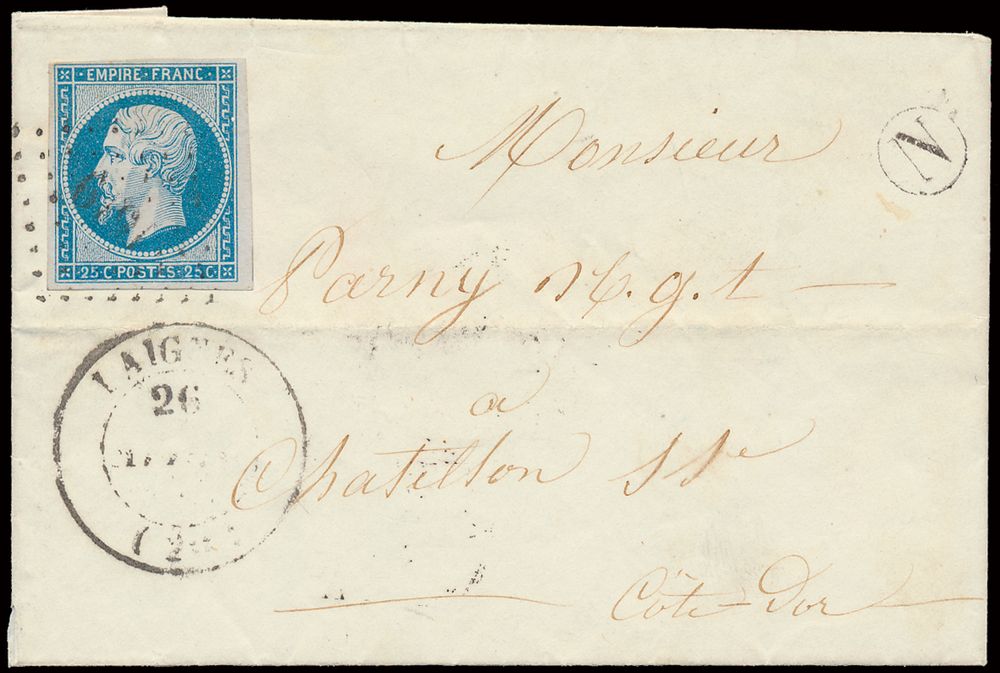 EMPIRE · FRANC ·
25 · C POSTES · 25 C
N
Monsieur
Parny N.g.t —
a
Chatillon s/Se
Côte-Dor
LAIGNES
26